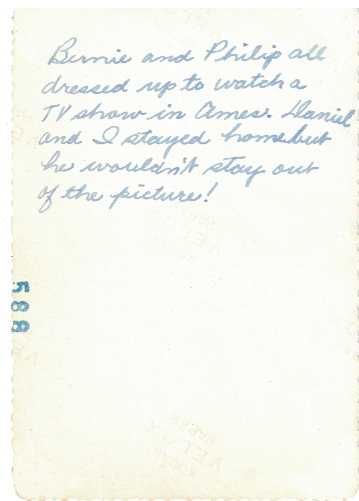 Bernie and Philip all
dressed up to watch a
TV show in Ames. Daniel
and I stayed home but
he wouldn't stay out
of the picture!
588
VELOX